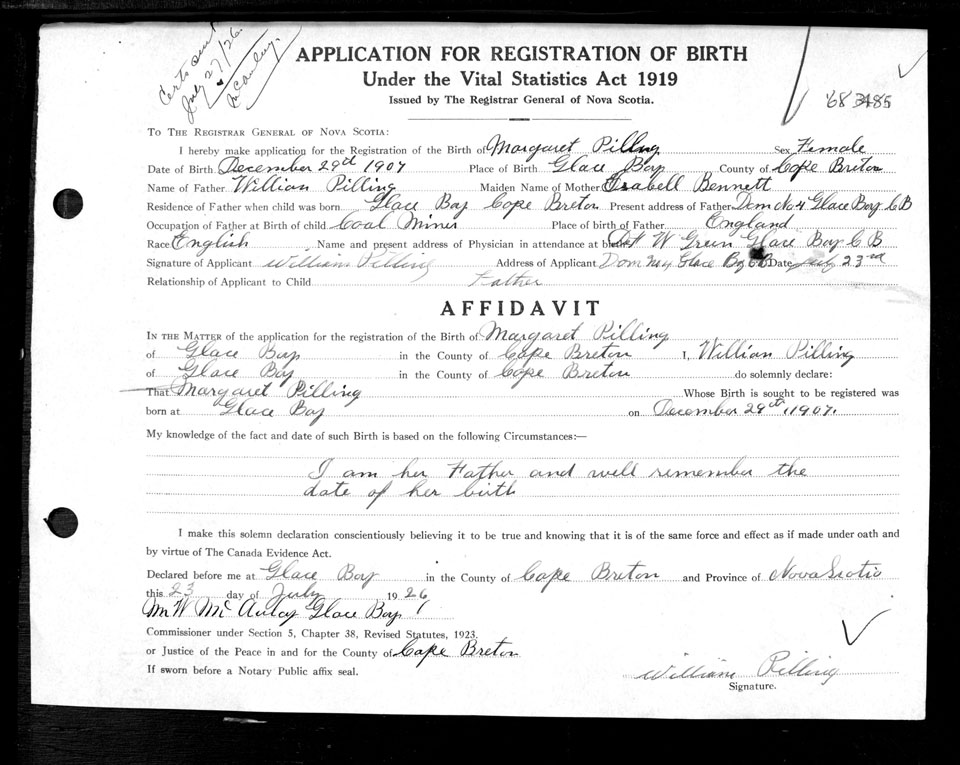 Certs sent
July 27/26.
McCauley.
APPLICATION FOR REGISTRATION OF BIRTH
Under the Vital Statistics Act 1919
Issued by The Registrar General of Nova Scotia.
'68 3485
TO THE REGISTRAR GENERAL OF NOVA SCOTIA:
I hereby make application for the Registration of the Birth of Margaret Pilling Sex Female
Date of Birth December 29th 1907 Place of Birth Glace Bay County of Cape Breton
Name of Father William Pilling Maiden Name of Mother Isabell Bennett
Residence of Father when child was born Glace Bay Cape Breton Present address of Father Dom No 4 Glace Bay C B
Occupation of Father at Birth of child Coal Miner Place of birth of Father England
Race English Name and present address of Physician in attendance at birth W Green Glace Bay C B
Signature of Applicant William Pilling Address of Applicant Dom Glace Bay C B Date July 23rd
Relationship of Applicant to Child Father
AFFIDAVIT
IN THE MATTER of the application for the registration of the Birth of Margaret Pilling
of Glace Bay in the County of Cape Breton I, William Pilling
of Glace Bay in the County of Cape Breton do solemnly declare:
That Margaret Pilling Whose Birth is sought to be registered was
born at Glace Bay on December 29th, 1907.
My knowledge of the fact and date of such Birth is based on the following Circumstances:—
I am her Father and well remember the
date of her birth
I make this solemn declaration conscientiously believing it to be true and knowing that it is of the same force and effect as if made under oath and
by virtue of The Canada Evidence Act.
Declared before me at Glace Bay in the County of Cape Breton and Province of Nova Scotia
this 23 day of July 1926
Wm W McAulay Glace Bay
Commissioner under Section 5, Chapter 38, Revised Statutes, 1923.
or Justice of the Peace in and for the County of Cape Breton
If sworn before a Notary Public affix seal.
William Pilling
Signature.